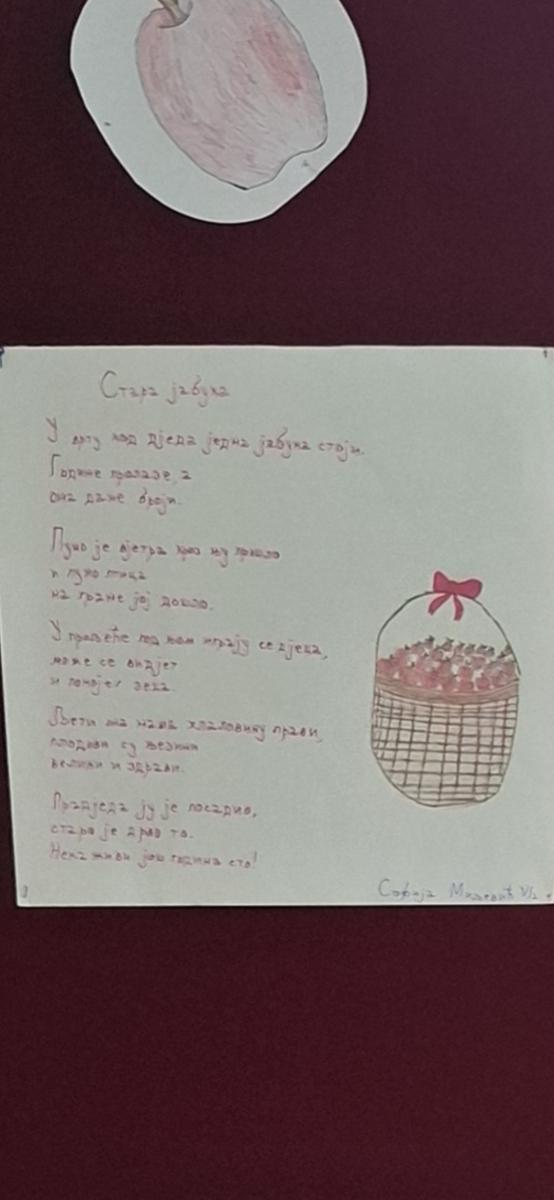 Стара јабука
У врту код дједа једна јабука стоји.
Године пролазе, а
она дане броји.
Пуно је вјетра кроз њу прошло
и пуно птица
на гране јој дошло.
У прољеће под њом играју се дјеца,
може се видјет
и понеки зеца.
Љети она нама хладовину прави,
плодови су њезини
велики и здрави.
Прадједа ју је посадио,
старо је дрво то.
Нека живи још година сто!
Софија